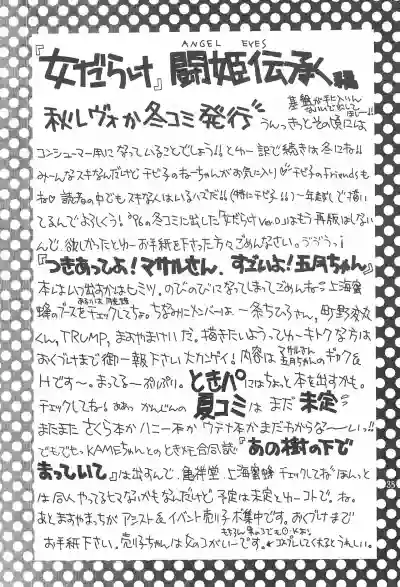 ANGEL EYES
『女だらけ』闘姫伝承編
秋レヴォか冬コミ発行
基盤が手に入りん
うんっきっとその頃には
コンシューマー用になっていることでしょう!!とゆー訳で続きは冬にね!!
みーんなスキなんだけどチビ子のねーちゃんがお気に入り♡チビ子のFriendsも
ね♡読者の中でもスキな人はいるハズだ!!(特にチビ子!!)〜年越しで描い
てるんでよろしくう!'96の冬コミに出した『女だらけver.0』はもう再版はしない
んで、欲しかったとゆーお手紙を下さった方々ごめんなさい。
『つきあってよ!マサルさん、すごいよ!五月ちゃん』
本はいつ出すかはヒミツ。のびのびになってしまってごめんね 上海蜜
蜂のブースをチェックしてちょ。ちなみにメンバーは、一条ちひろさん、町野変丸
くん、TRUMP、まおやまけいだ。描きたいようってゆーキトクな方は
おくづけまで御一報下さい 大カンゲイ!内容は マサルさん 五月ちゃんの ギャグ&
Hです〜。まってる〜 ときパにはちょっと本を出すかも。
チェックしてね〜! ああっ かんじんの 夏コミは まだ 未定
またまた さくら本か ハニー本か ウテナ本か まだわからな〜いっ!!
でもでもっ KAMEちゃんとのときメモ合同誌『あの樹の下で
まっていて』は出すんで、亀祥堂、上海蜜蜂 チェックしてね ほんっと
は同人やってるヒマなのかもなんだけど 予定は未定とゆーコトで。ね。
あと まおやまっちが アシスト&イベント売り子ボ集中です。おくづけまで
お手紙下さい。売り子ちゃんは女のコがいーです。★コスプレしてくれるとうれしい。
35